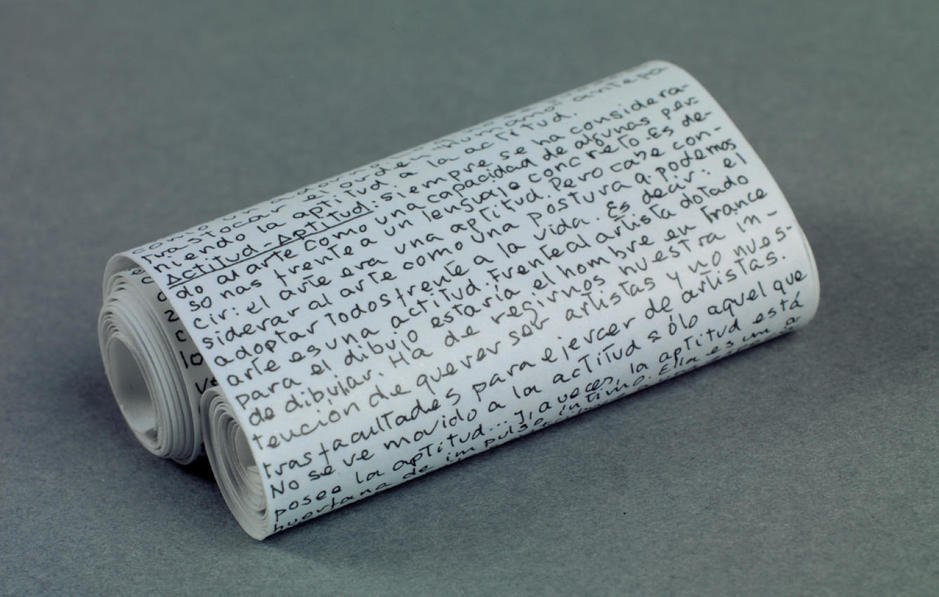 trastocar el orden humano: antepo
niendo la aptitud a la actitud.
Actitud-Aptitud: siempre se ha considera-
do al arte como una capacidad de algunas per-
sonas frente a un lenguaje concreto. Es de-
cir: el arte era una aptitud. Pero cabe con-
siderar al arte como una postura q. podemos
adoptar todos frente a la vida. Es decir: el
arte es una actitud. Frente al artista dotado
para el dibujo estaría el hombre en trance
de dibujar. Ha de regirnos nuestra in-
tención de querer ser artistas y no nues-
tras facultades para ejercer de artistas.
No se ve movido a la actitud sólo aquel que
posee la aptitud... y, a veces, la aptitud está
huérfana de impulso íntimo. Ella es un a